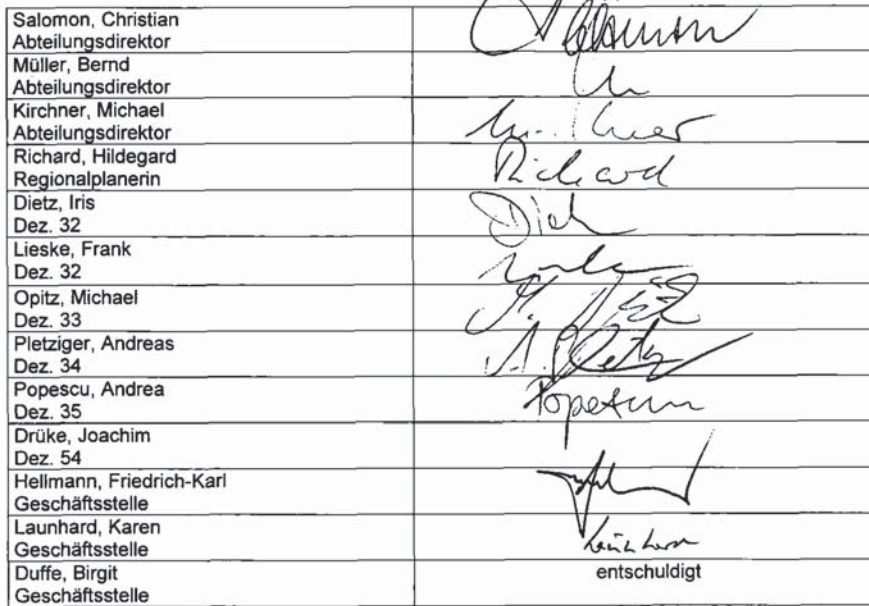 Salomon, Christian
Abteilungsdirektor
Müller, Bernd
Abteilungsdirektor
Kirchner, Michael
Abteilungsdirektor
Richard, Hildegard
Regionalplanerin
Richard
Dietz, Iris
Dez. 32
Lieske, Frank
Dez. 32
Opitz, Michael
Dez. 33
Pletziger, Andreas
Dez. 34
Popescu, Andrea
Dez. 35
Popescu
Drüke, Joachim
Dez. 54
Hellmann, Friedrich-Karl
Geschäftsstelle
Launhard, Karen
Geschäftsstelle
Duffe, Birgit
Geschäftsstelle
entschuldigt